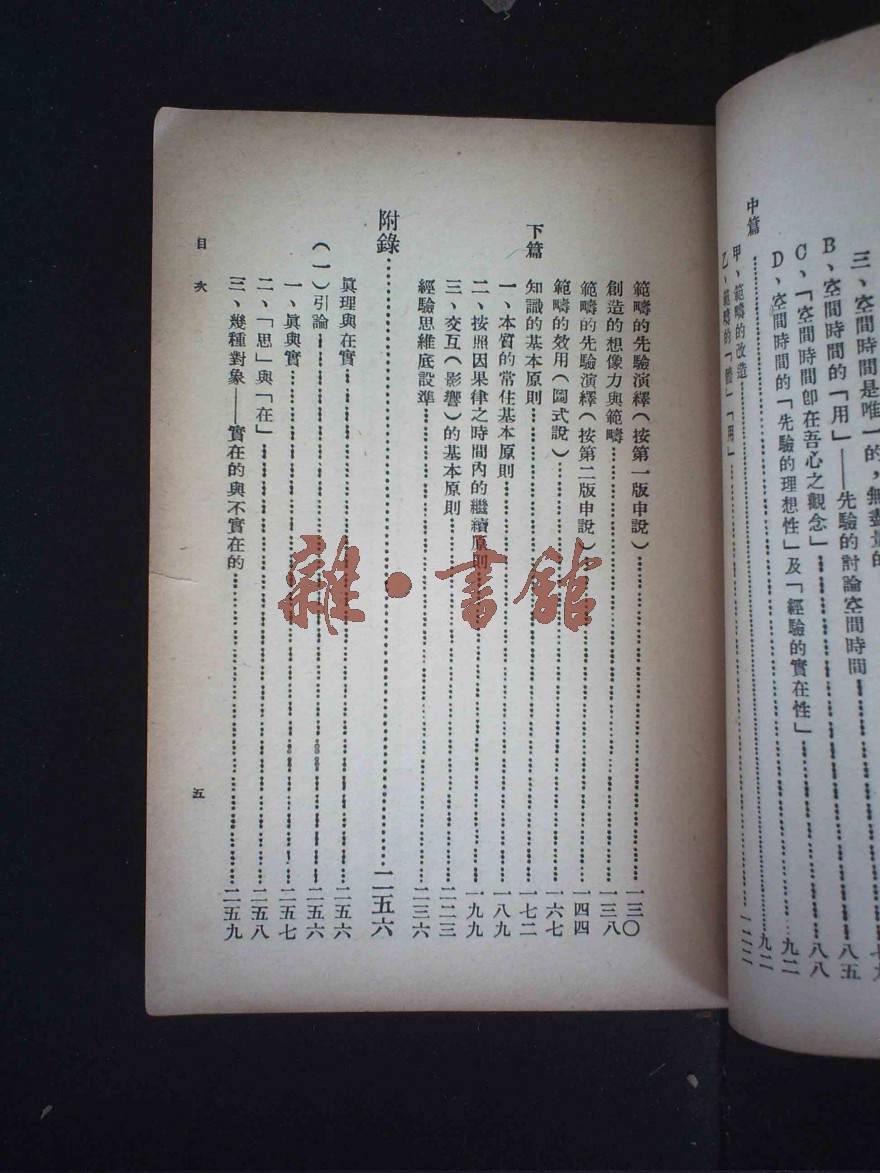 三、空間時間是唯一的，無盡量的
B、空間時間的「用」——先驗的討論空間時間……七九
C、「空間時間卽在吾心之觀念」……八五
D、空間時間的「先驗的理想性」及「經驗的實在性」……八八
中篇……九二
甲、範疇的改造……九二
乙、範疇的「體」「用」……一二二
範疇的先驗演繹（按第一版申說）……一三〇
創造的想像力與範疇……一三八
範疇的先驗演繹（按第二版申說）……一四四
範疇的效用（圖式說）……一六七
下篇
知識的基本原則……一七二
一、本質的常住基本原則……一八九
二、按照因果律之時間內的繼續原則……一九九
三、交互（影響）的基本原則……二二三
經驗思維底設準……二三六
附錄……二五六
眞理與在實……二五六
（一）引論……二五六
一、眞與實……二五七
二、「思」與「在」……二五八
三、幾種對象——實在的與不實在的……二五九
目次
五
雜·書館